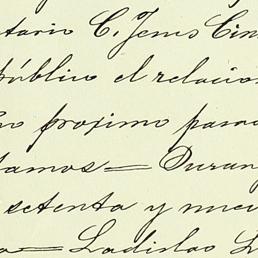 tario C. Jesus Cin
público el relacio
no proximo pasa
tamos = Duran
setenta y nuev
= Ladislao L